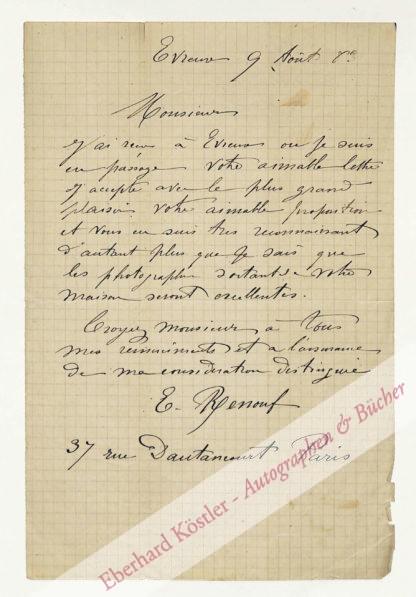 Evreux 9 Août
Monsieur
J'ai reçu à Evreux ou je suis
en passage votre aimable lettre
J'accepte avec le plus grand
plaisir votre aimable proposition
et vous en suis très reconnaissant
d'autant plus que je sais que
les photographies sortant de votre
maison seront excellentes.
Croyez monsieur à tous
mes remerciments et a l'assurance
de ma considération distinguée
E. Renouf
37 rue Dautancourt Paris
Eberhard Köstler - Autographen & Bücher